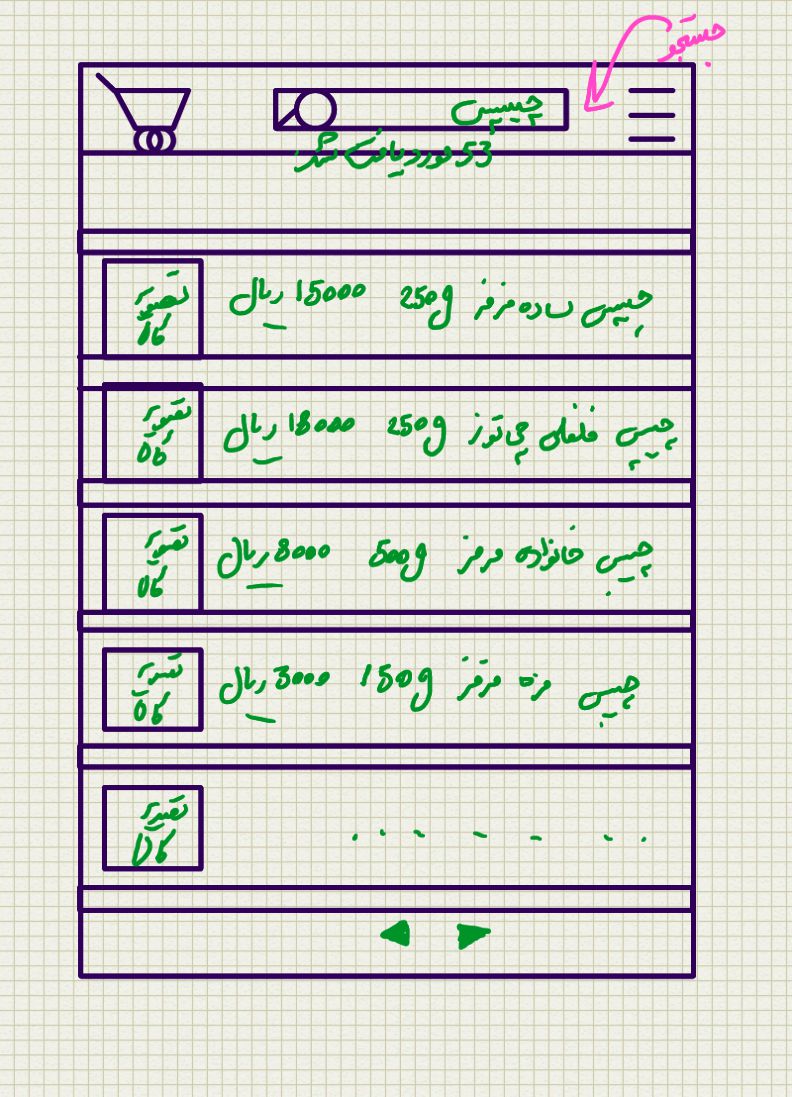 جستجو
چیپس
53 مورد یافت شد
چیپس ساده مزمز 250g 15000 ریال
تصویر کالا
چیپس فلفلی چی توز 250g 18000 ریال
تصویر کالا
چیپس خانواده مزمز 500g 8000 ریال
تصویر کالا
چیپس مزه مزمز 150g 3000 ریال
تصویر کالا
تصویر کالا